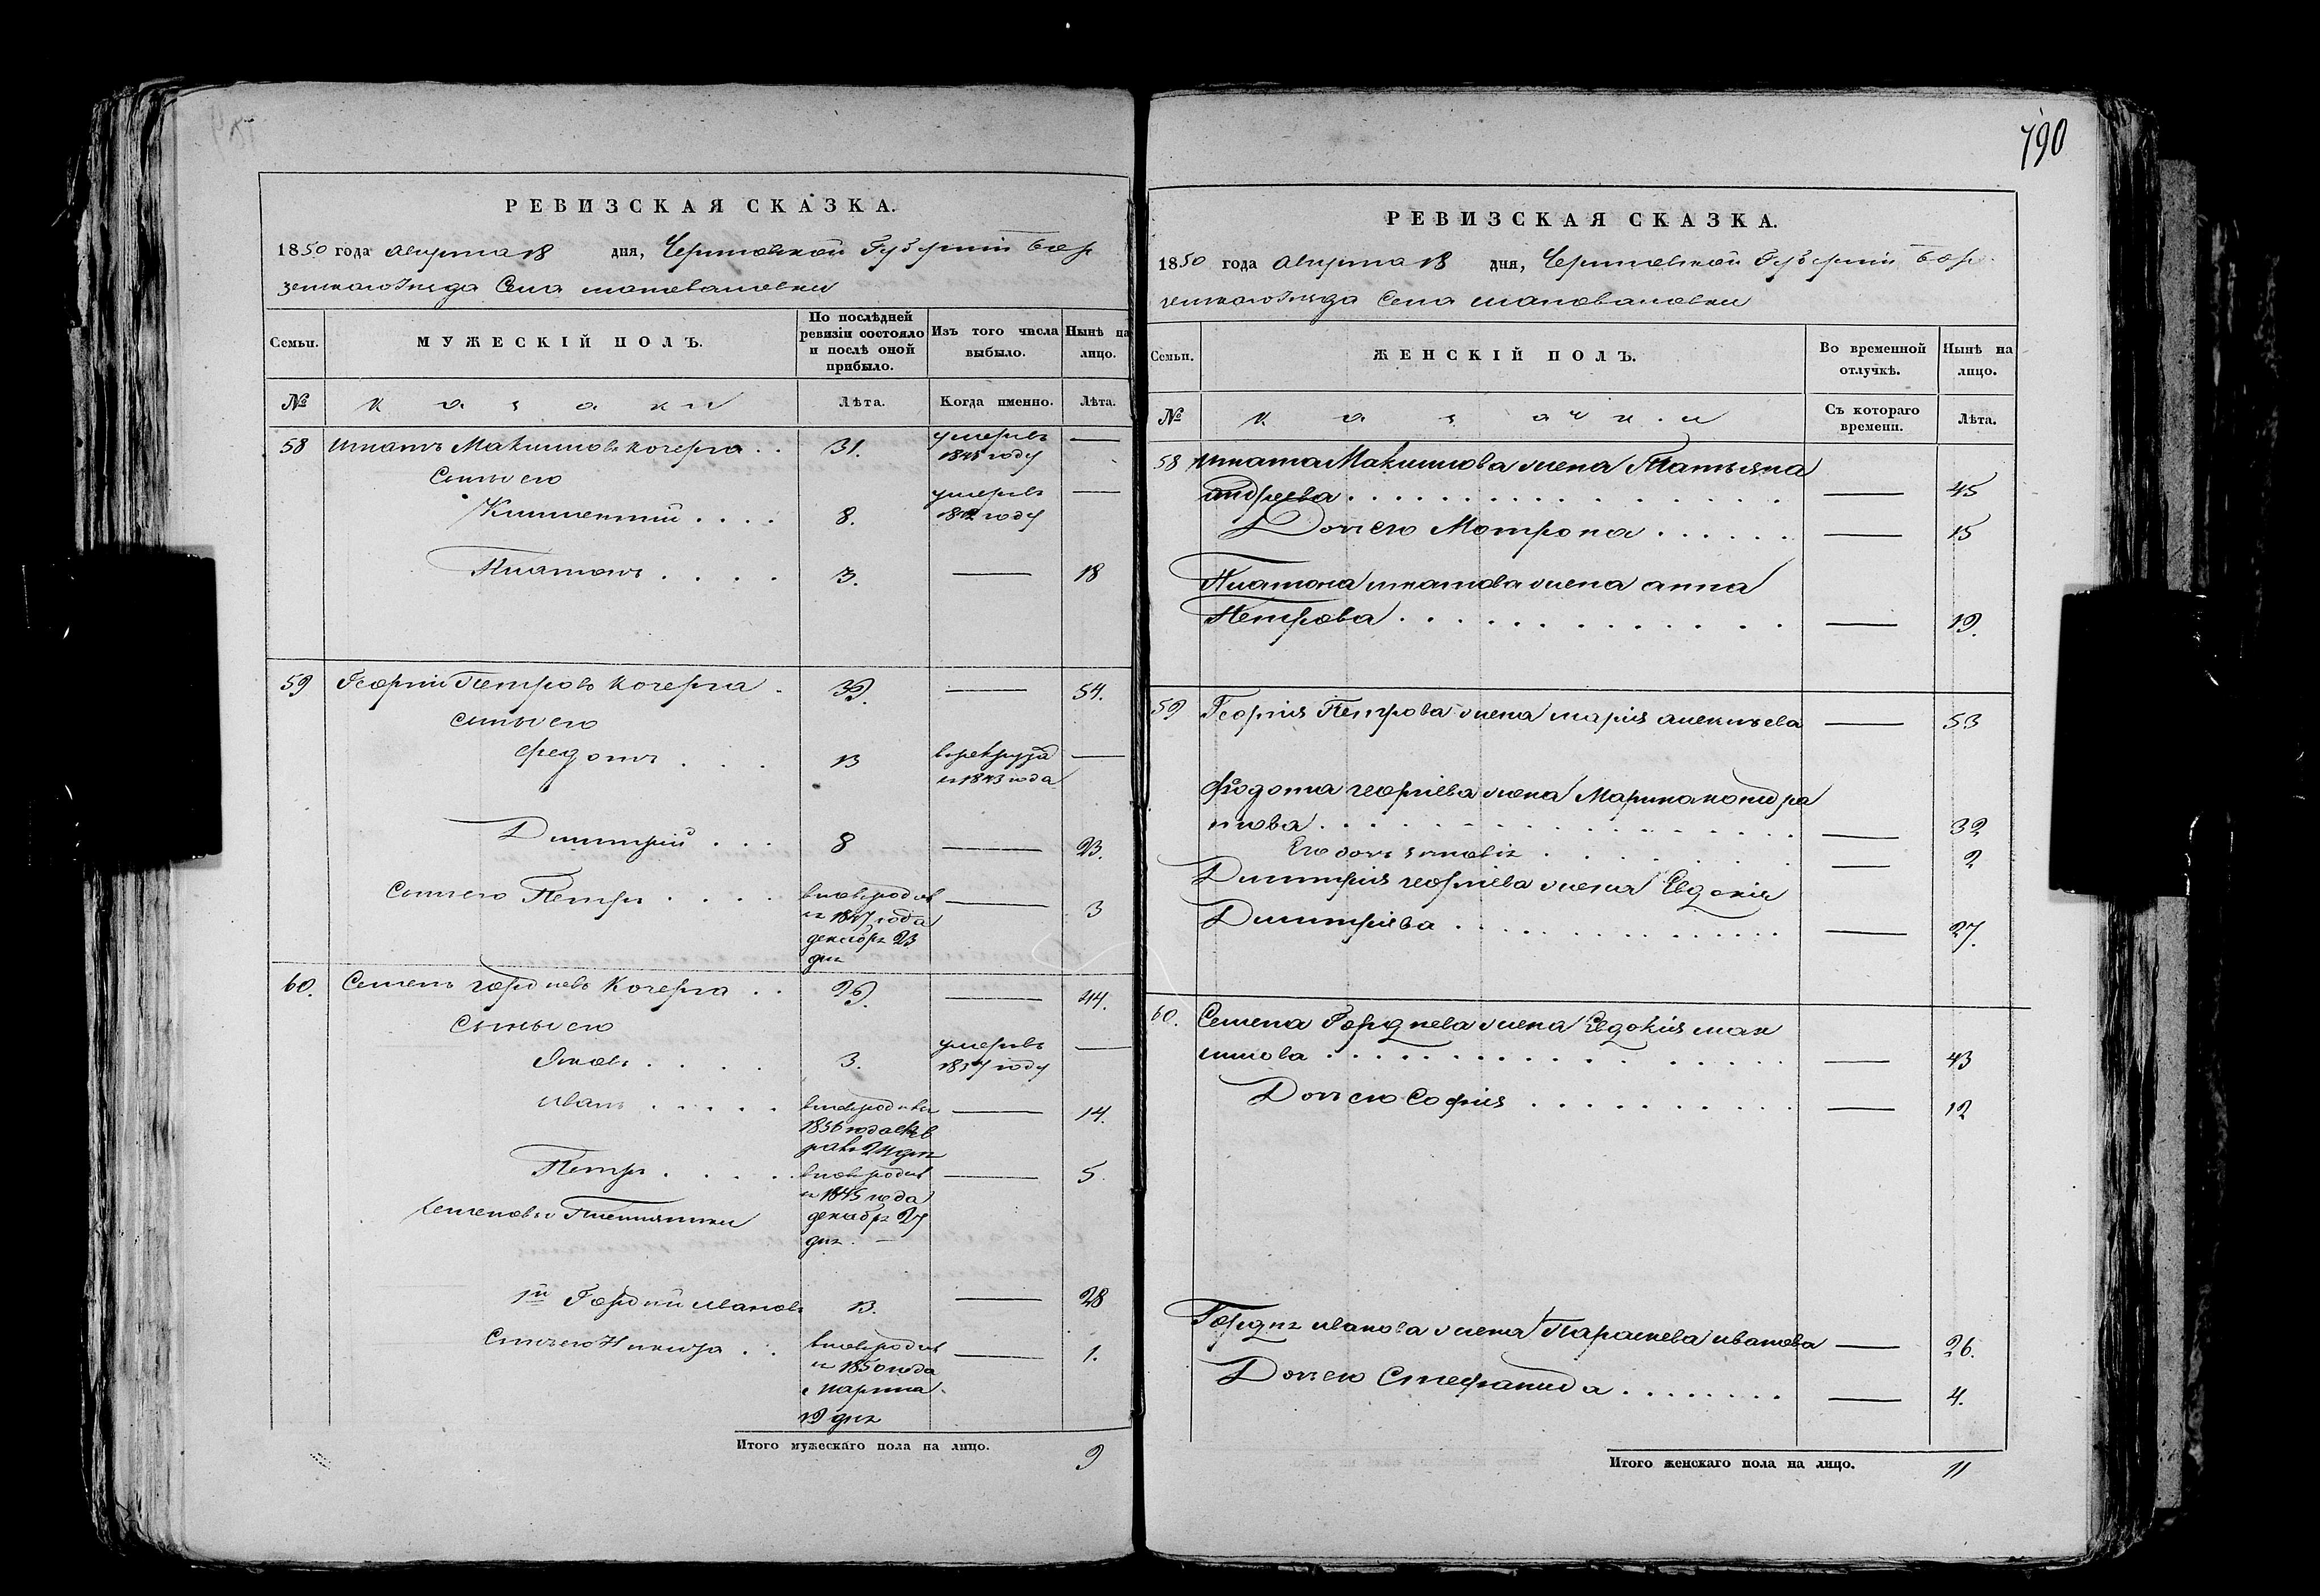 РЕВИЗСКАЯ СКАЗКА.
1850 года Августа 18 дня, Черниговской Губерніи Бор
зенскаго Уезда Села Шаповаловки
Семьи.
МУЖЕСКІЙ ПОЛЪ.
По послѣдней ревизіи состояло и послѣ оной прибыло.
Изъ того числа выбыло.
Нынѣ на лицо.
№
Казаки
Лѣта.
Когда именно.
Лѣта.
58 Игнатъ Максимовъ Кочерга . . 31. умеръ въ 1845 году —
Сыны его
Климентий . . . . 8. умеръ въ 1842 году —
Платонъ . . . . 3. — 18
59 Георгий Петровъ Кочерга . 39. — 54.
Сыны его
Федотъ . . . 13 в рекруты 1843 года —
Дмитрий . . . 8 — 23.
Сынъ его Петръ . . . . вновь родив 1847 года декабря 23 дня — 3
60. Семенъ Гордиевъ Кочерга . . 29. — 44.
Сыны его
Яковъ . . . . 3. умеръ въ 1837 году —
Иванъ . . . . . вновь родився 1836 года февраля 24 дня — 14.
Петръ . . . . . вновь родив 1845 года декабря 27 дня — 5
Семеновы Племянники
1й Гордий Ивановъ 13. — 28
Сынъ его Никита . . вновь родив 1850 года марта 19 дня — 1.
Итого мужескаго пола на лицо. 9
790
РЕВИЗСКАЯ СКАЗКА.
1850 года Августа 18 дня, Черниговской Губерніи Бор
зенскаго Уезда Села Шаповаловки
Семьи.
ЖЕНСКІЙ ПОЛЪ.
Во временной отлучкѣ.
Нынѣ на лицо.
№
Казачки
Съ котораго времени.
Лѣта.
58 Игната Максимова жена Татьяна
Андреева . . . . . . — 45
Дочь его Мотрона . . . . . . — 15
Платона Игнатова жена Анна
Петрова . . . . . . — 19.
59 Георгия Петрова жена Мария Алексѣева — 53
Федота Георгиева жена Марина Кондра
това . . . . . . — 32
Его дочь Зиновия . . . . — 2
Дмитрия Георгиева жена Евдокия
Дмитриева . . . . . . — 27.
60. Семена Гордиева жена Евдокия Мак
симова . . . . . . — 43
Дочь его София . . . . . . — 12
Гордия Иванова жена Параскева Иванова — 26.
Дочь его Стефанида . . . . . . — 4.
Итого женскаго пола на лицо. 11